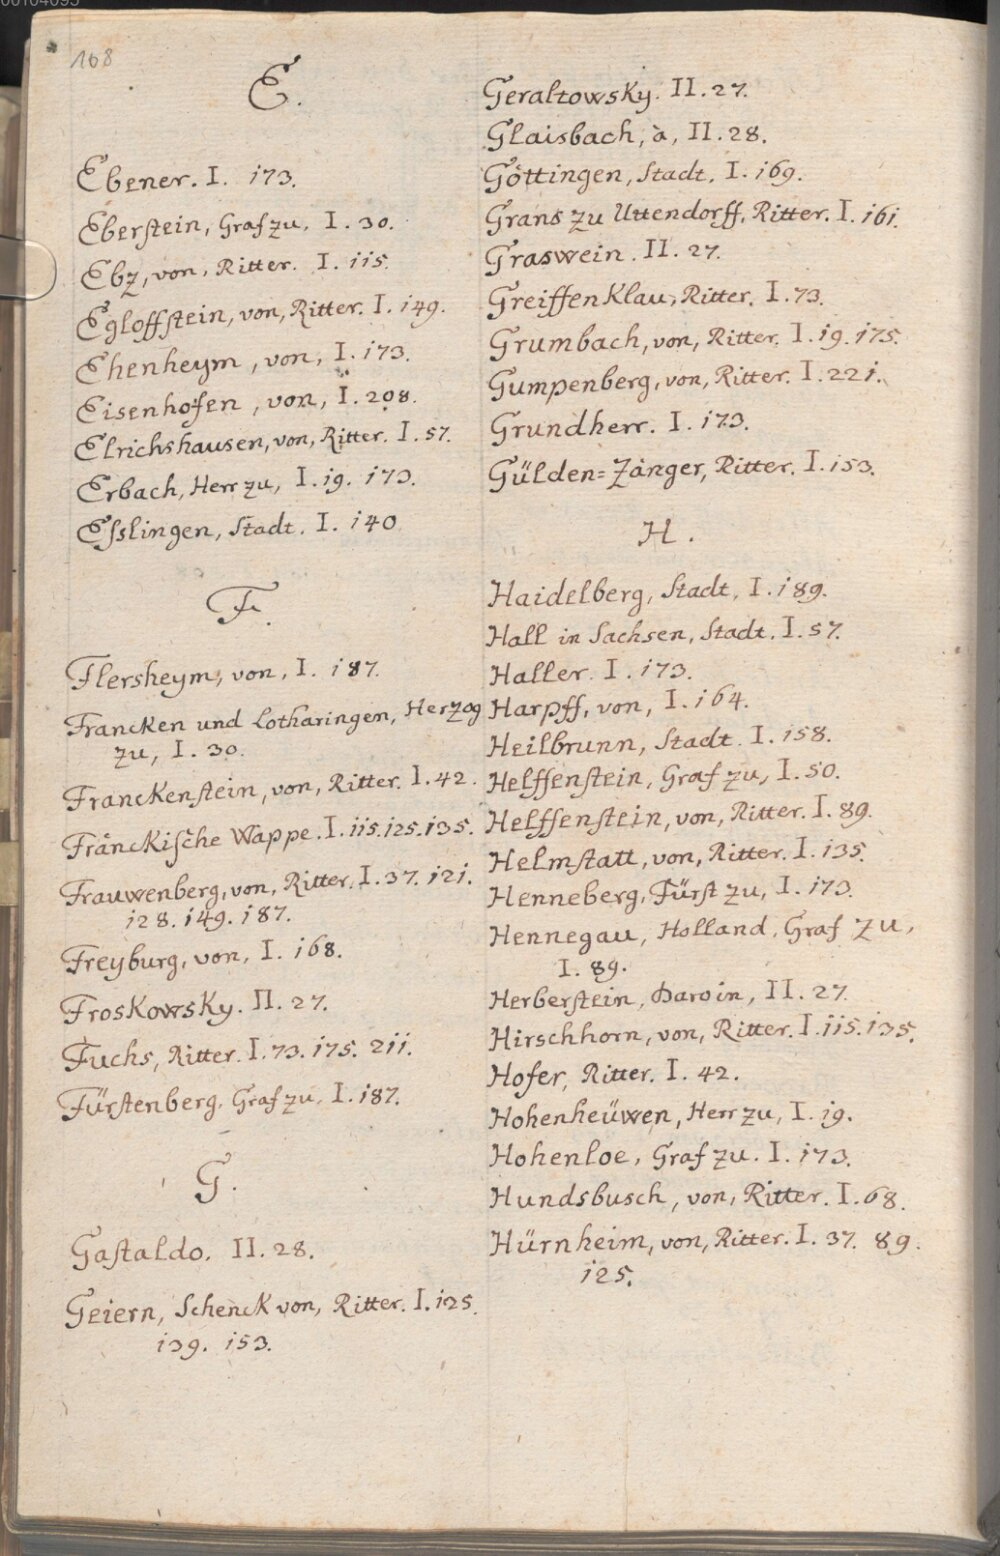 00104095
168
E.
Ebener. I. 173.
Eberstein, Graf zu, I. 30.
Ebz, von, Ritter. I. 115.
Egloffstein, von, Ritter. I. 149.
Ehenheym, von, I. 173.
Eisenhofen, von, I. 208.
Elrichshausen, von, Ritter. I. 57.
Erbach, Herr zu, I. 19. 173.
Esslingen, Stadt. I. 140
F.
Flersheym, von, I. 187.
Francken und Lotharingen, Herzog
zu, I. 30.
Franckenstein, von, Ritter. I. 42.
Fränckische Wappe. I. 115. 125. 135.
Frauwenberg, von, Ritter. I. 37. 121.
128. 149. 187.
Freyburg, von, I. 168.
Froskowsky. II. 27.
Fuchs, Ritter. I. 73. 175. 211.
Fürstenberg, Graf zu, I. 187.
G.
Gastaldo. II. 28.
Geiern, Schenck von, Ritter. I. 125.
139. 153.
Geraltowsky. II. 27.
Glaisbach, à, II. 28.
Göttingen, Stadt, I. 169.
Grans zu Uttendorff, Ritter. I. 161.
Graswein. II. 27.
Greiffen Klau, Ritter. I. 73.
Grumbach, von, Ritter. I. 19. 175.
Gumpenberg, von, Ritter. I. 221.
Grundherr. I. 173.
Gülden=Zänger, Ritter. I. 153.
H.
Haidelberg, Stadt, I. 189.
Hall in Sachsen, Stadt. I. 57.
Haller. I. 173.
Harpff, von, I. 164.
Heilbrunn, Stadt. I. 158.
Helffenstein, Graf zu, I. 50.
Helffenstein, von, Ritter. I. 89.
Helmstatt, von, Ritter. I. 135.
Henneberg, Fürst zu, I. 173.
Hennegau, Holland, Graf zu,
I. 89.
Herberstein, Darvin, II. 27.
Hirschhorn, von, Ritter. I. 115. 135.
Hofer, Ritter. I. 42.
Hohenheüwen, Herr zu, I. 19.
Hohenloe, Graf zu. I. 173.
Hundsbusch, von, Ritter. I. 68.
Hürnheim, von, Ritter. I. 37. 89.
125.